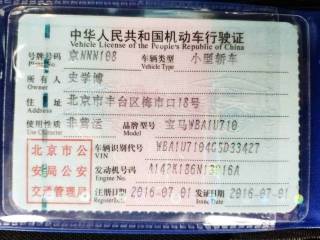 中华人民共和国机动车行驶证
Vehicle License of the People's Republic of China
号牌号码 京NNN108 车辆类型 小型轿车
Plate No. Vehicle Type
所有人 史学博
Owner
住址 北京市丰台区梅市口18号
Address
使用性质 非营运 品牌型号 宝马WBA1U710
Use Character Model
北京市公 车辆识别代号 WBA1U7104G5D33427
VIN
安局公安 发动机号码
Engine No.
交通管理局 注册日期 2016-07-01 发证日期 2016-07-01
Register Date Issue Date